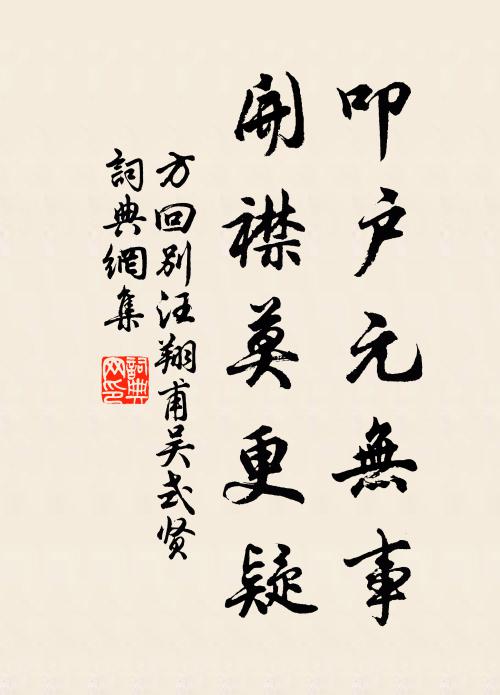 叩户元無事
開襟莫更疑
方回别汪翔甫吴式贤
詞典網集
詞典網印